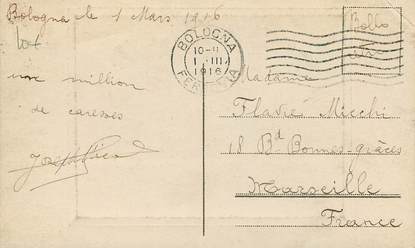 Bologna le 1 Mars 1916
un million
de caresses
BOLOGNA
10-11
1.III
1916
FERROVIA
Bollo
Madame
Flavie Micchi
18 Bd Bonnes-grâces
Marseille
France